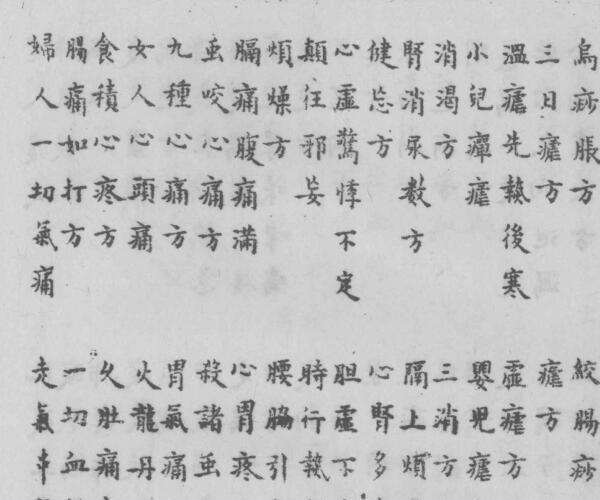 烏痧脹方
三日瘧方
溫瘧先熱後寒
小兒癉瘧
消渴方
腎消尿數方
健忘方
心虛驚悸不定
顛狂邪妄
煩燥方
膈痛腹痛滿
虫咬心痛方
九種心痛方
女人心頭痛
食積心疼方
腸痛如打方
婦人一切氣痛
絞腸痧
瘧方
虛瘧方
嬰兒瘧
三消方
隔上煩
心腎多
胆虛不
時行熱
腰脇引
心胃疼
殺諸虫
胃氣痛
火龍丹
久肚痛
一切血
走氣